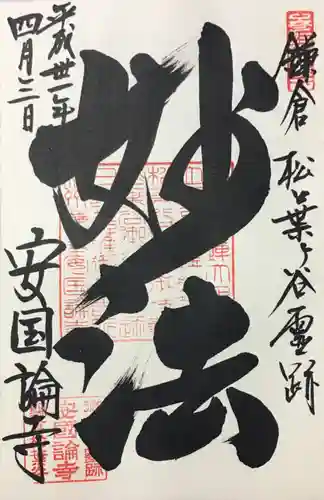 鎌倉 松葉ヶ谷霊跡
妙法
平成卅一年
四月三日
安国論寺